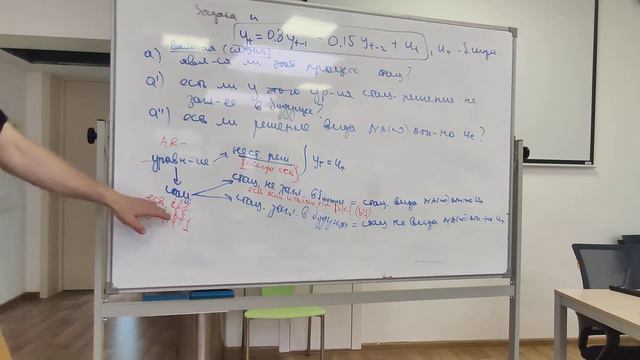 Задача
yₜ = 0.8 yₜ₋₁ - 0.15 yₜ₋₂ + uₜ , uₜ - б. шум.
а) явл-ся ли этот процесс стац?
а') есть ли у этого ур-ия стац. решение не
зав-ее в будущее?
а'') есть ли решение вида MA(∞) отн-но uₜ ?
AR-
уравн-ие нест. реш. yₜ = uₜ
[всегда есть]
стац. стац. не загл. в будущее = стац. вида MA(∞) отн-но uₜ
есть если и только если
стац. загл. в будущее = стац не вида MA(∞) отн-но uₜ